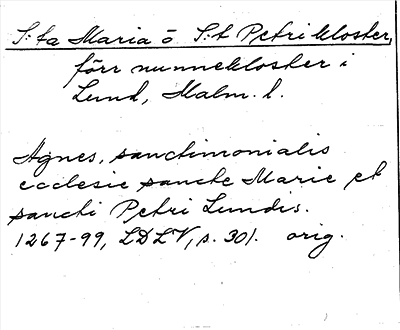 S:ta Maria o S:t Petri kloster,
förr nunnekloster i
Lund, Malm. l.
Agnes, sanctimonialis
ecclesie sancte Marie et
sancti Petri Lundis.
1267-99, LDLV, s. 301. orig.